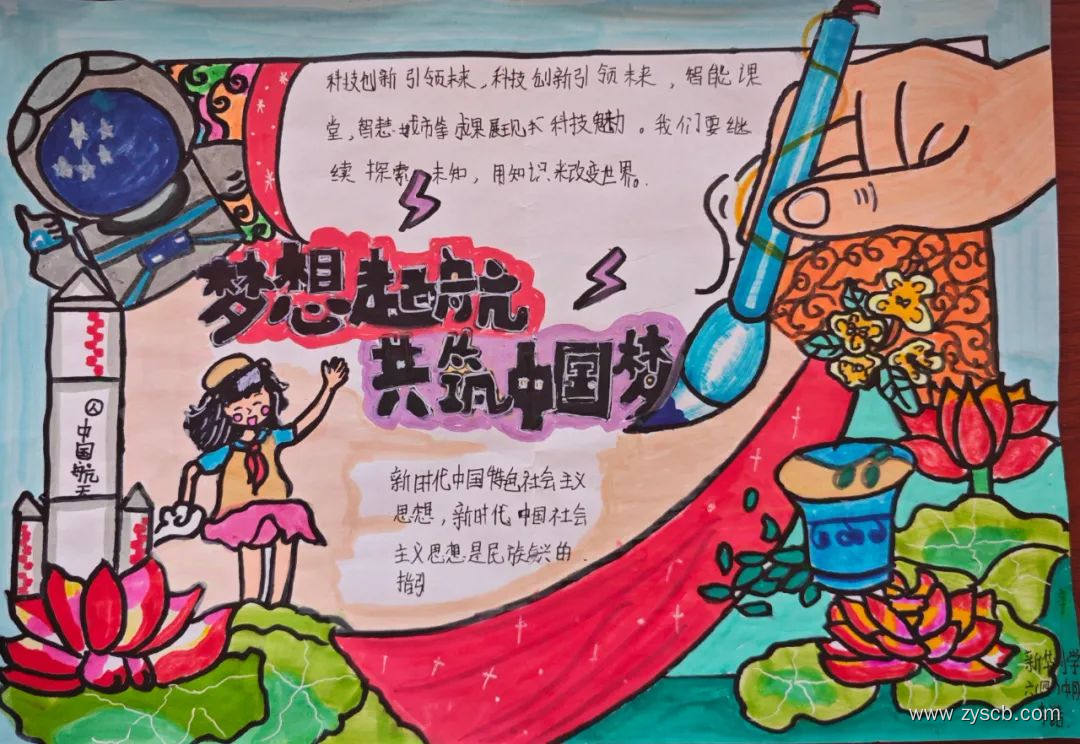 科技创新引领未来,科技创新引领未来,智能课
堂,智慧城市等成果展现式科技魅力。我们要继
续探索未知,用知识来改变世界。
梦想起航
共筑中国梦
中国航天
新时代中国特色社会主义
思想,新时代中国社会
主义思想是民族复兴的
指引
新华小学
www.zyscb.com